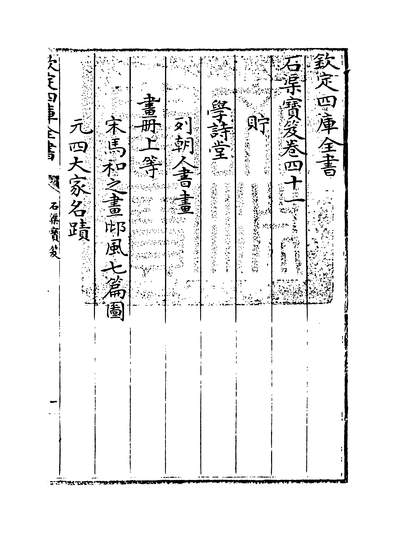 欽定四庫全書
石渠寶笈卷四十一
貯
學詩堂
列朝人書畫
畫冊上等
宋馬和之畫邶風七篇圖
元四大家名蹟
欽定四庫全書
石渠寶笈
一